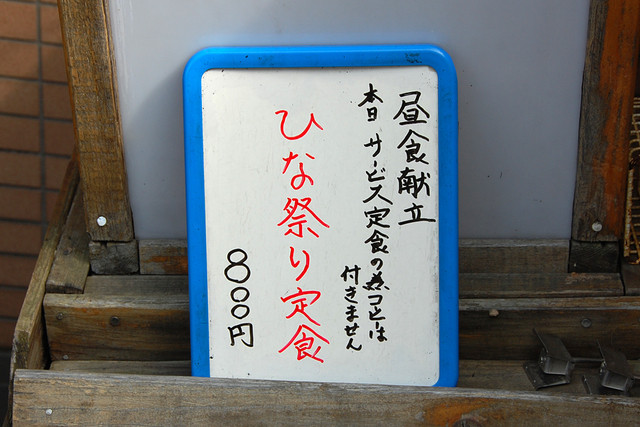 昼食献立
本日 サービス定食の為コーヒーは
付きません
ひな祭り定食
800円